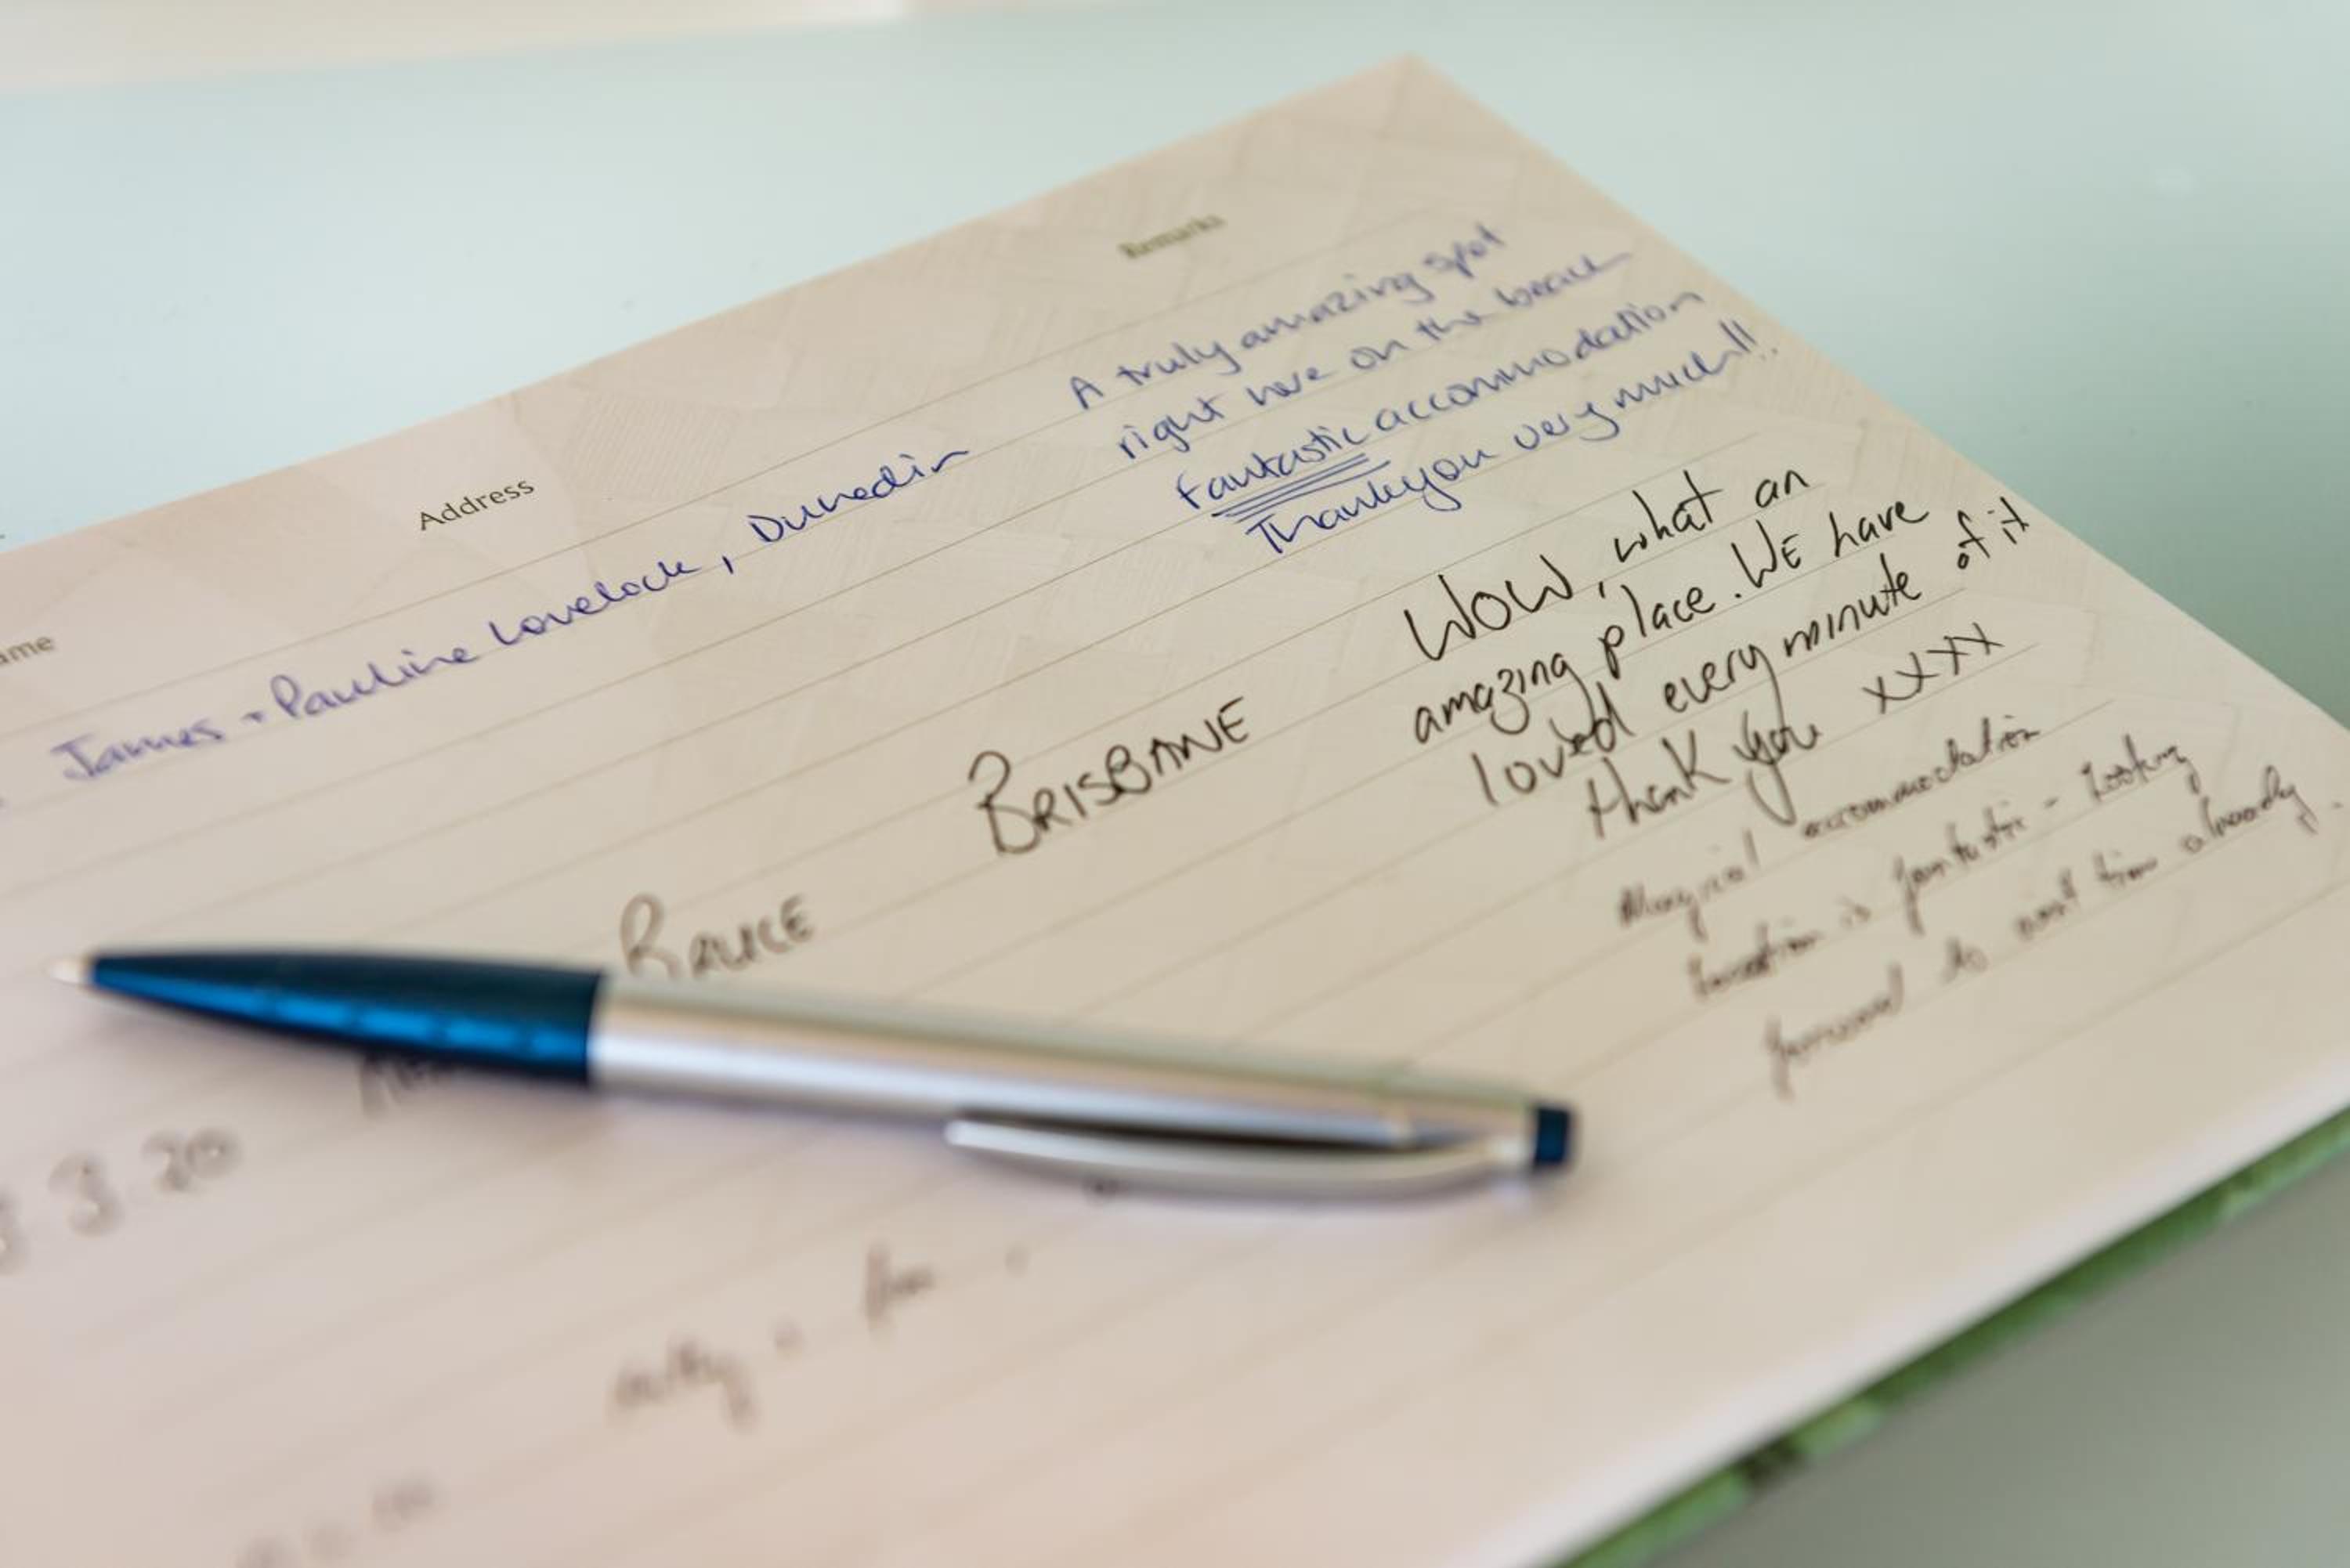 Address
Remarks
James + Pauline Lovelock, Dunedin
A truly amazing spot
right here on the beach
Fantastic accommodation
Thankyou very much!!
BRISBANE
WOW, what an
amazing place. WE have
loved every minute of it
thank you xxxx
Magical accommodation
location is fantastic - looking
forward to next time already.
3 20